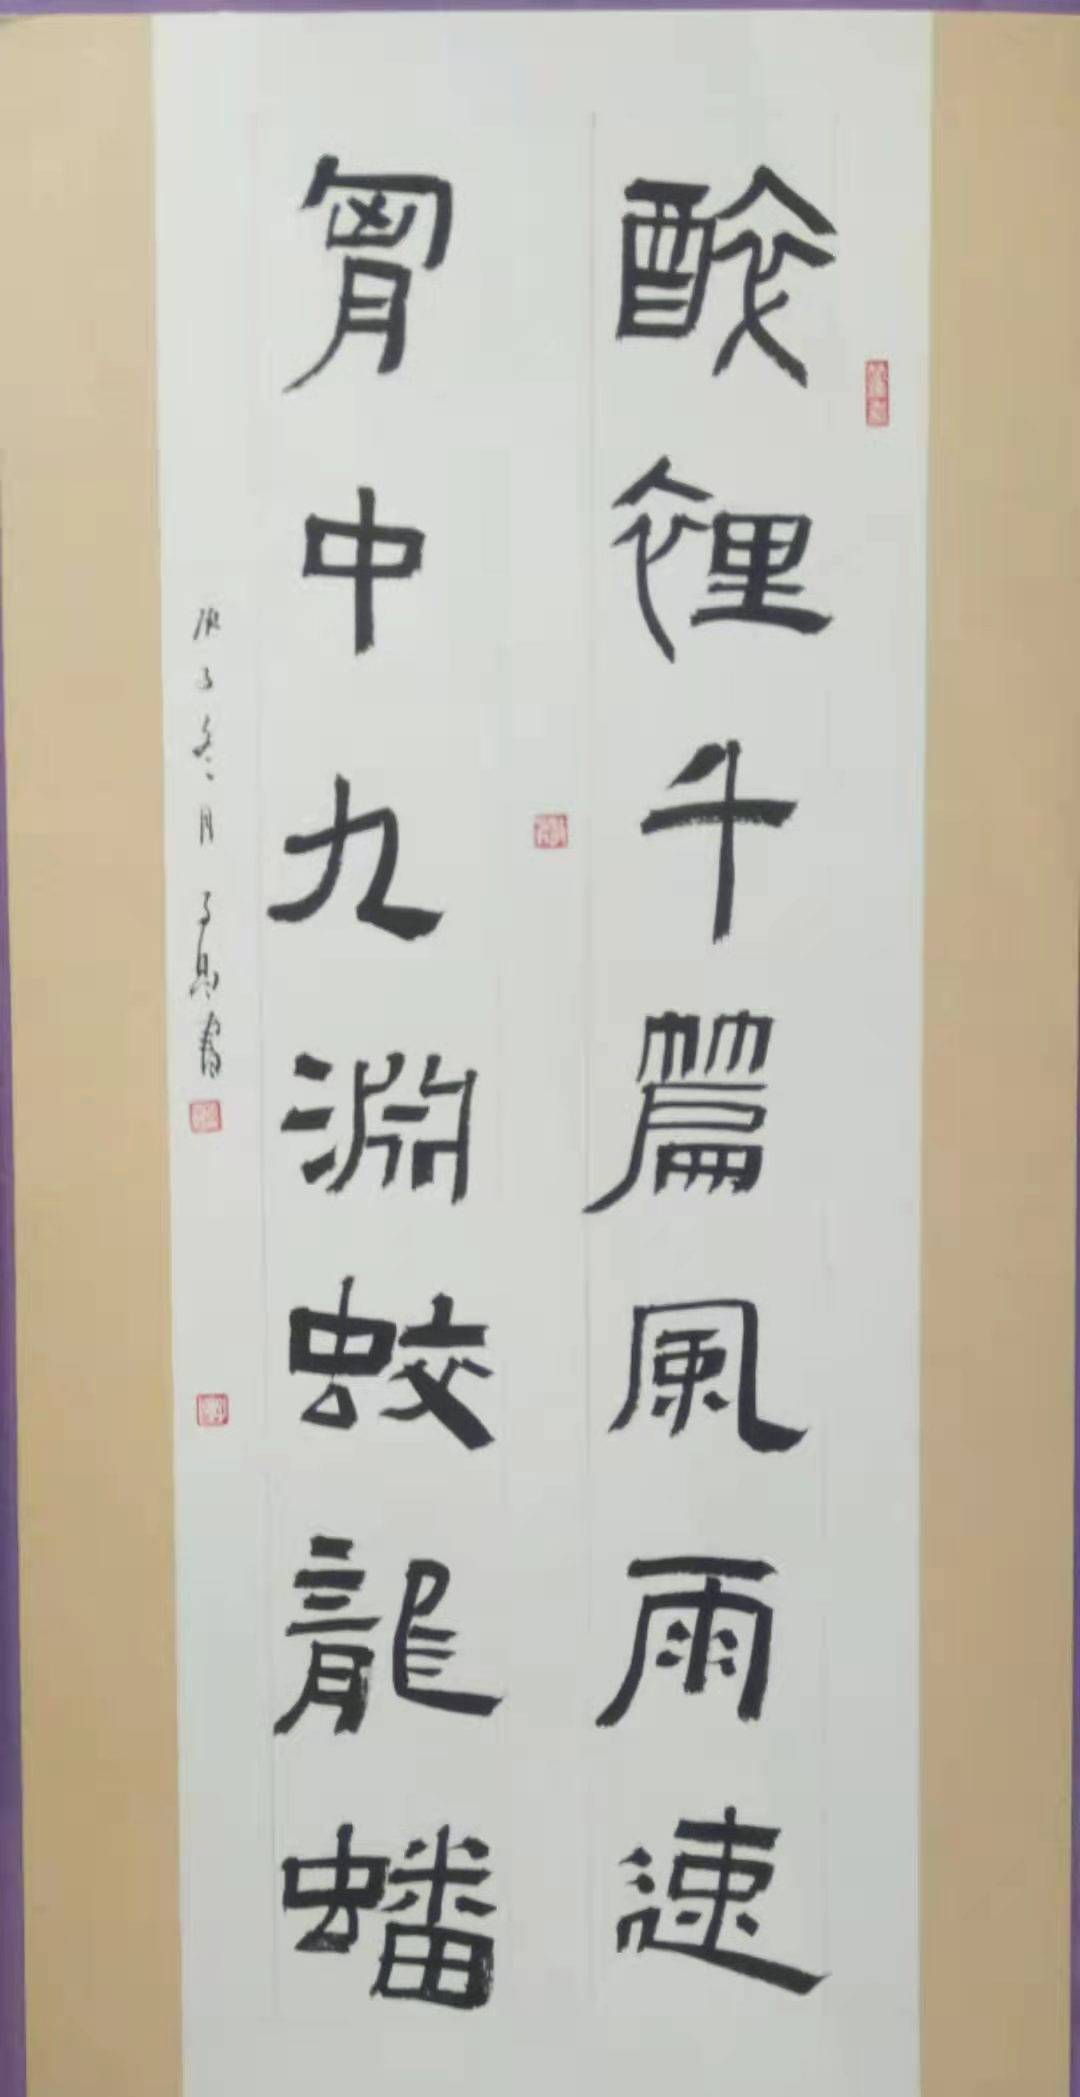 醉裡千篇風雨速
胷中九淵蛟龍蟠
庚子冬月 書